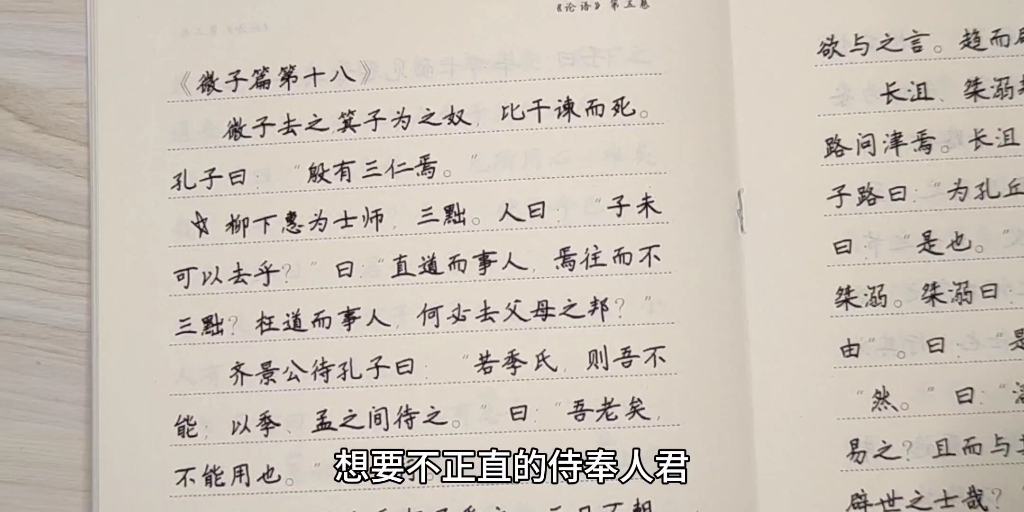 《论语》第五卷
《微子篇第十八》
微子去之,箕子为之奴,比干谏而死。
孔子曰:“殷有三仁焉。”
☆柳下惠为士师,三黜。人曰:“子未
可以去乎?”曰:“直道而事人,焉往而不
三黜?枉道而事人,何必去父母之邦?”
齐景公待孔子曰:“若季氏,则吾不
能;以季、孟之间待之。”曰:“吾老矣,
不能用也。”
欲与之言。趋而
长沮、桀溺
路问津焉。长沮
子路曰:“为孔丘
曰:“是也。”
桀溺。桀溺曰:
由”。曰:“是
“然。”曰:“
易之?且而与
辟世之士哉?
想要不正直的侍奉人君